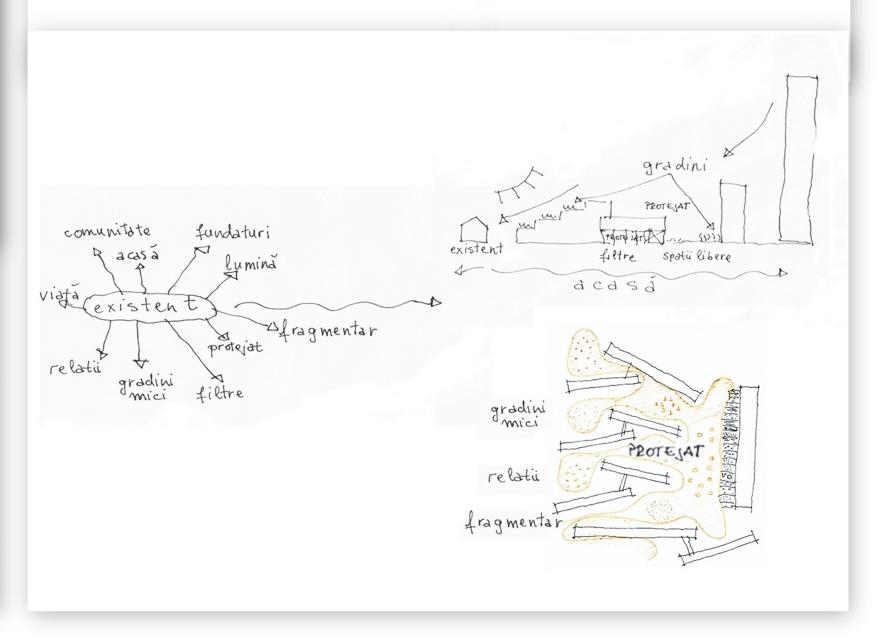 comunitate
acasă
fundaturi
lumină
viață
existent
fragmentar
protejat
relatii
gradini
mici
filtre
gradini
PROTEJAT
existent
PROTEJAT
filtre
spatii libere
acasă
gradini
mici
PROTEJAT
relatii
fragmentar